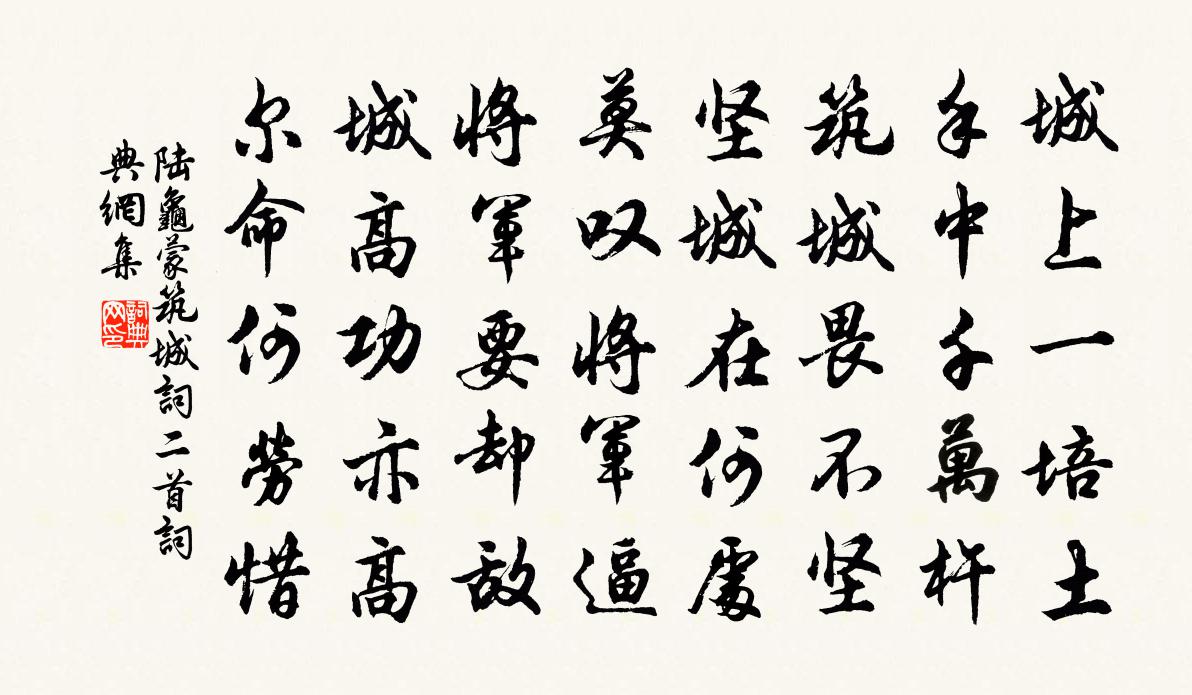 城上一培土
手中千萬杵
筑城畏不坚
坚城在何處
莫叹将軍逼
将軍要却敌
城高功亦高
尔命何勞惜
陆龜蒙筑城詞二首詞
典網集
詞典
网印